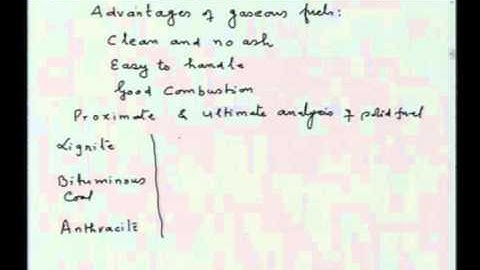 Advantages of gaseous fuels:
Clean and no ash
Easy to handle
Good Combustion
Proximate & ultimate analysis of solid fuel
Lignite
Bituminous
Coal
Anthracite